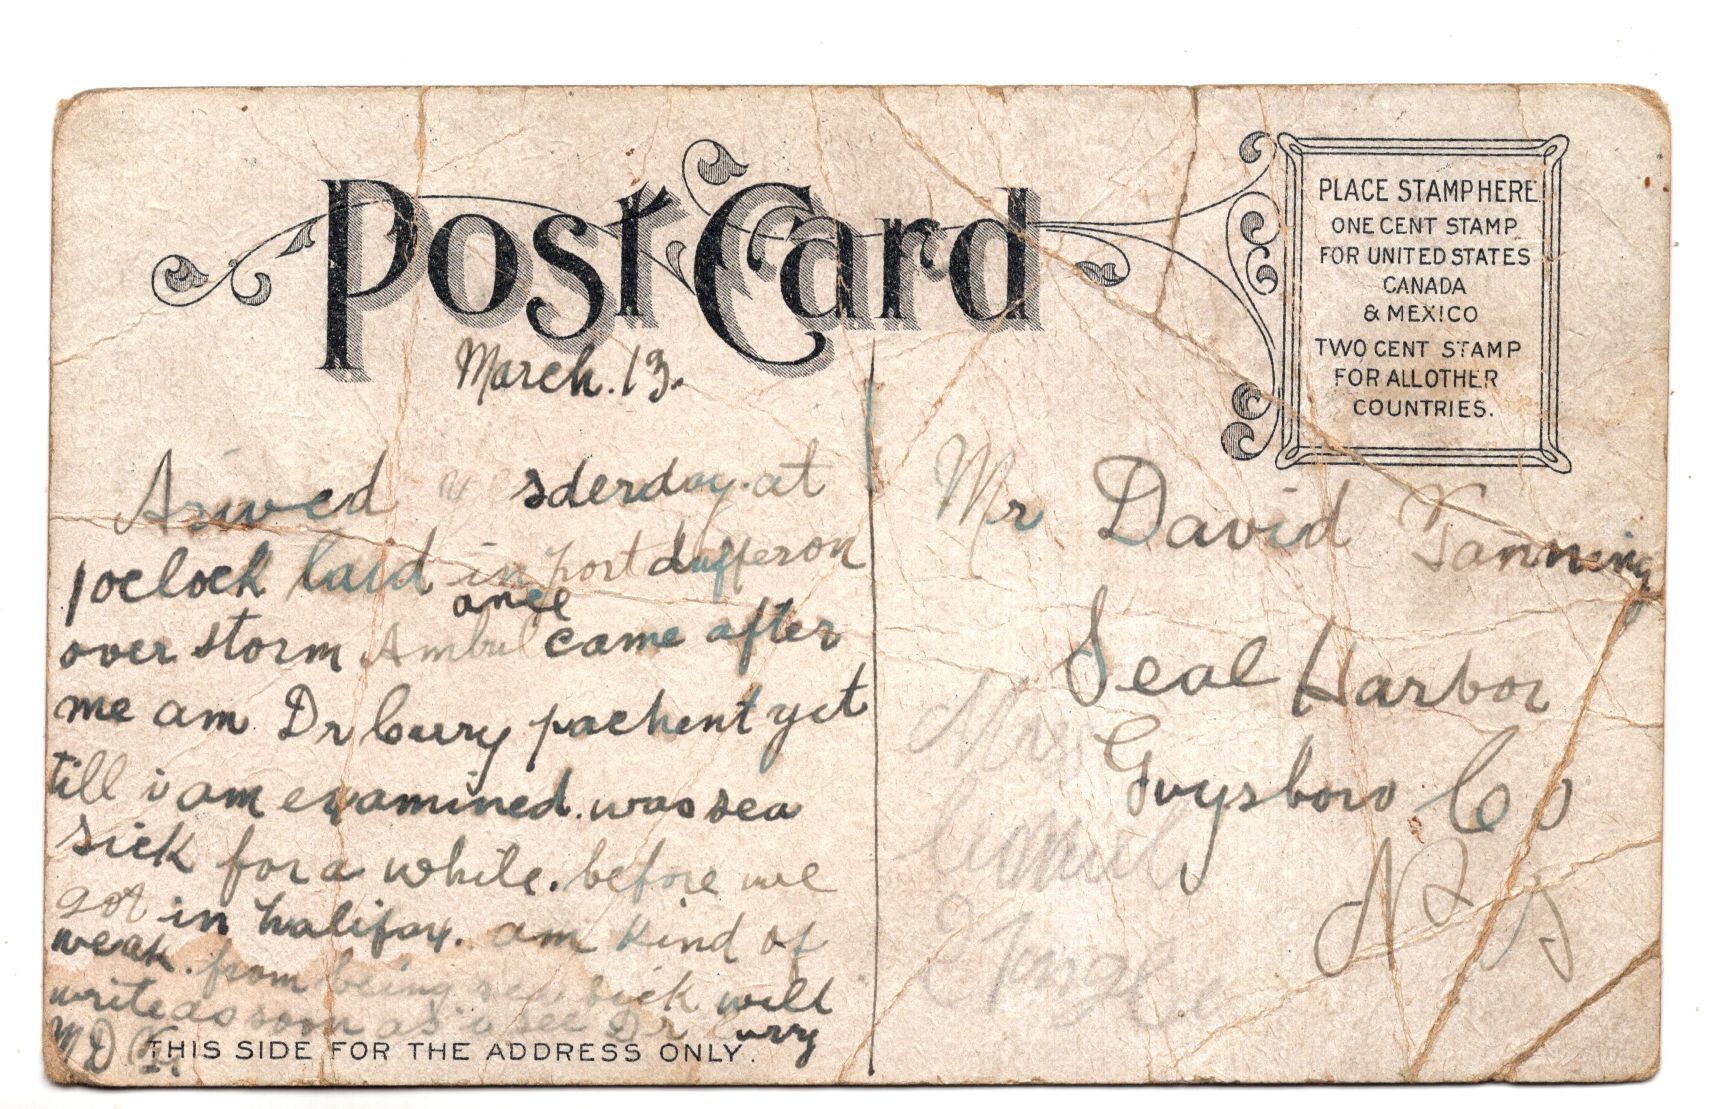 Post Card
PLACE STAMP HERE
ONE CENT STAMP
FOR UNITED STATES
CANADA
& MEXICO
TWO CENT STAMP
FOR ALL OTHER
COUNTRIES.
March. 13.
Arived sderday. at
1 oclock laid in port dufferon
over storm Ambulance came after
me am Dr Curry pachent yet
till i am examined. was sea
sick for a while. before we
got in halifax. am kind of
weak. from being sea sick will
write as soon as i see Dr Curry
M D
THIS SIDE FOR THE ADDRESS ONLY.
Mr David Fanning
Seal Harbor
Guysboro Co
N S
Mrs